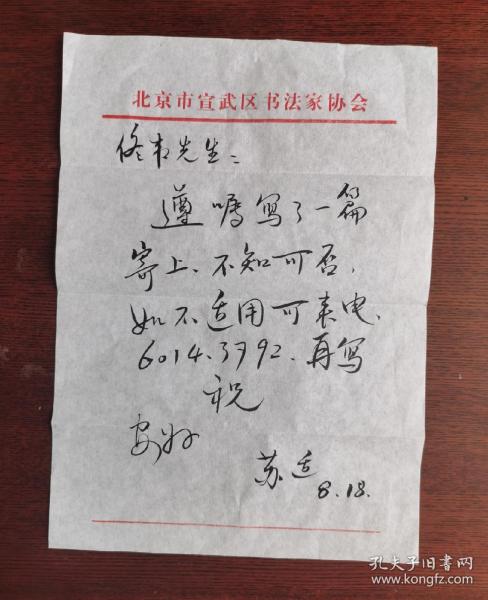 北京市宣武区书法家协会
佟韦先生：
遵嘱写了一篇
寄上、不知可否，
如不适用可来电、
6014.3792.再写
祝
安好
苏适
8.18.
孔夫子旧书网
www.kongfz.com